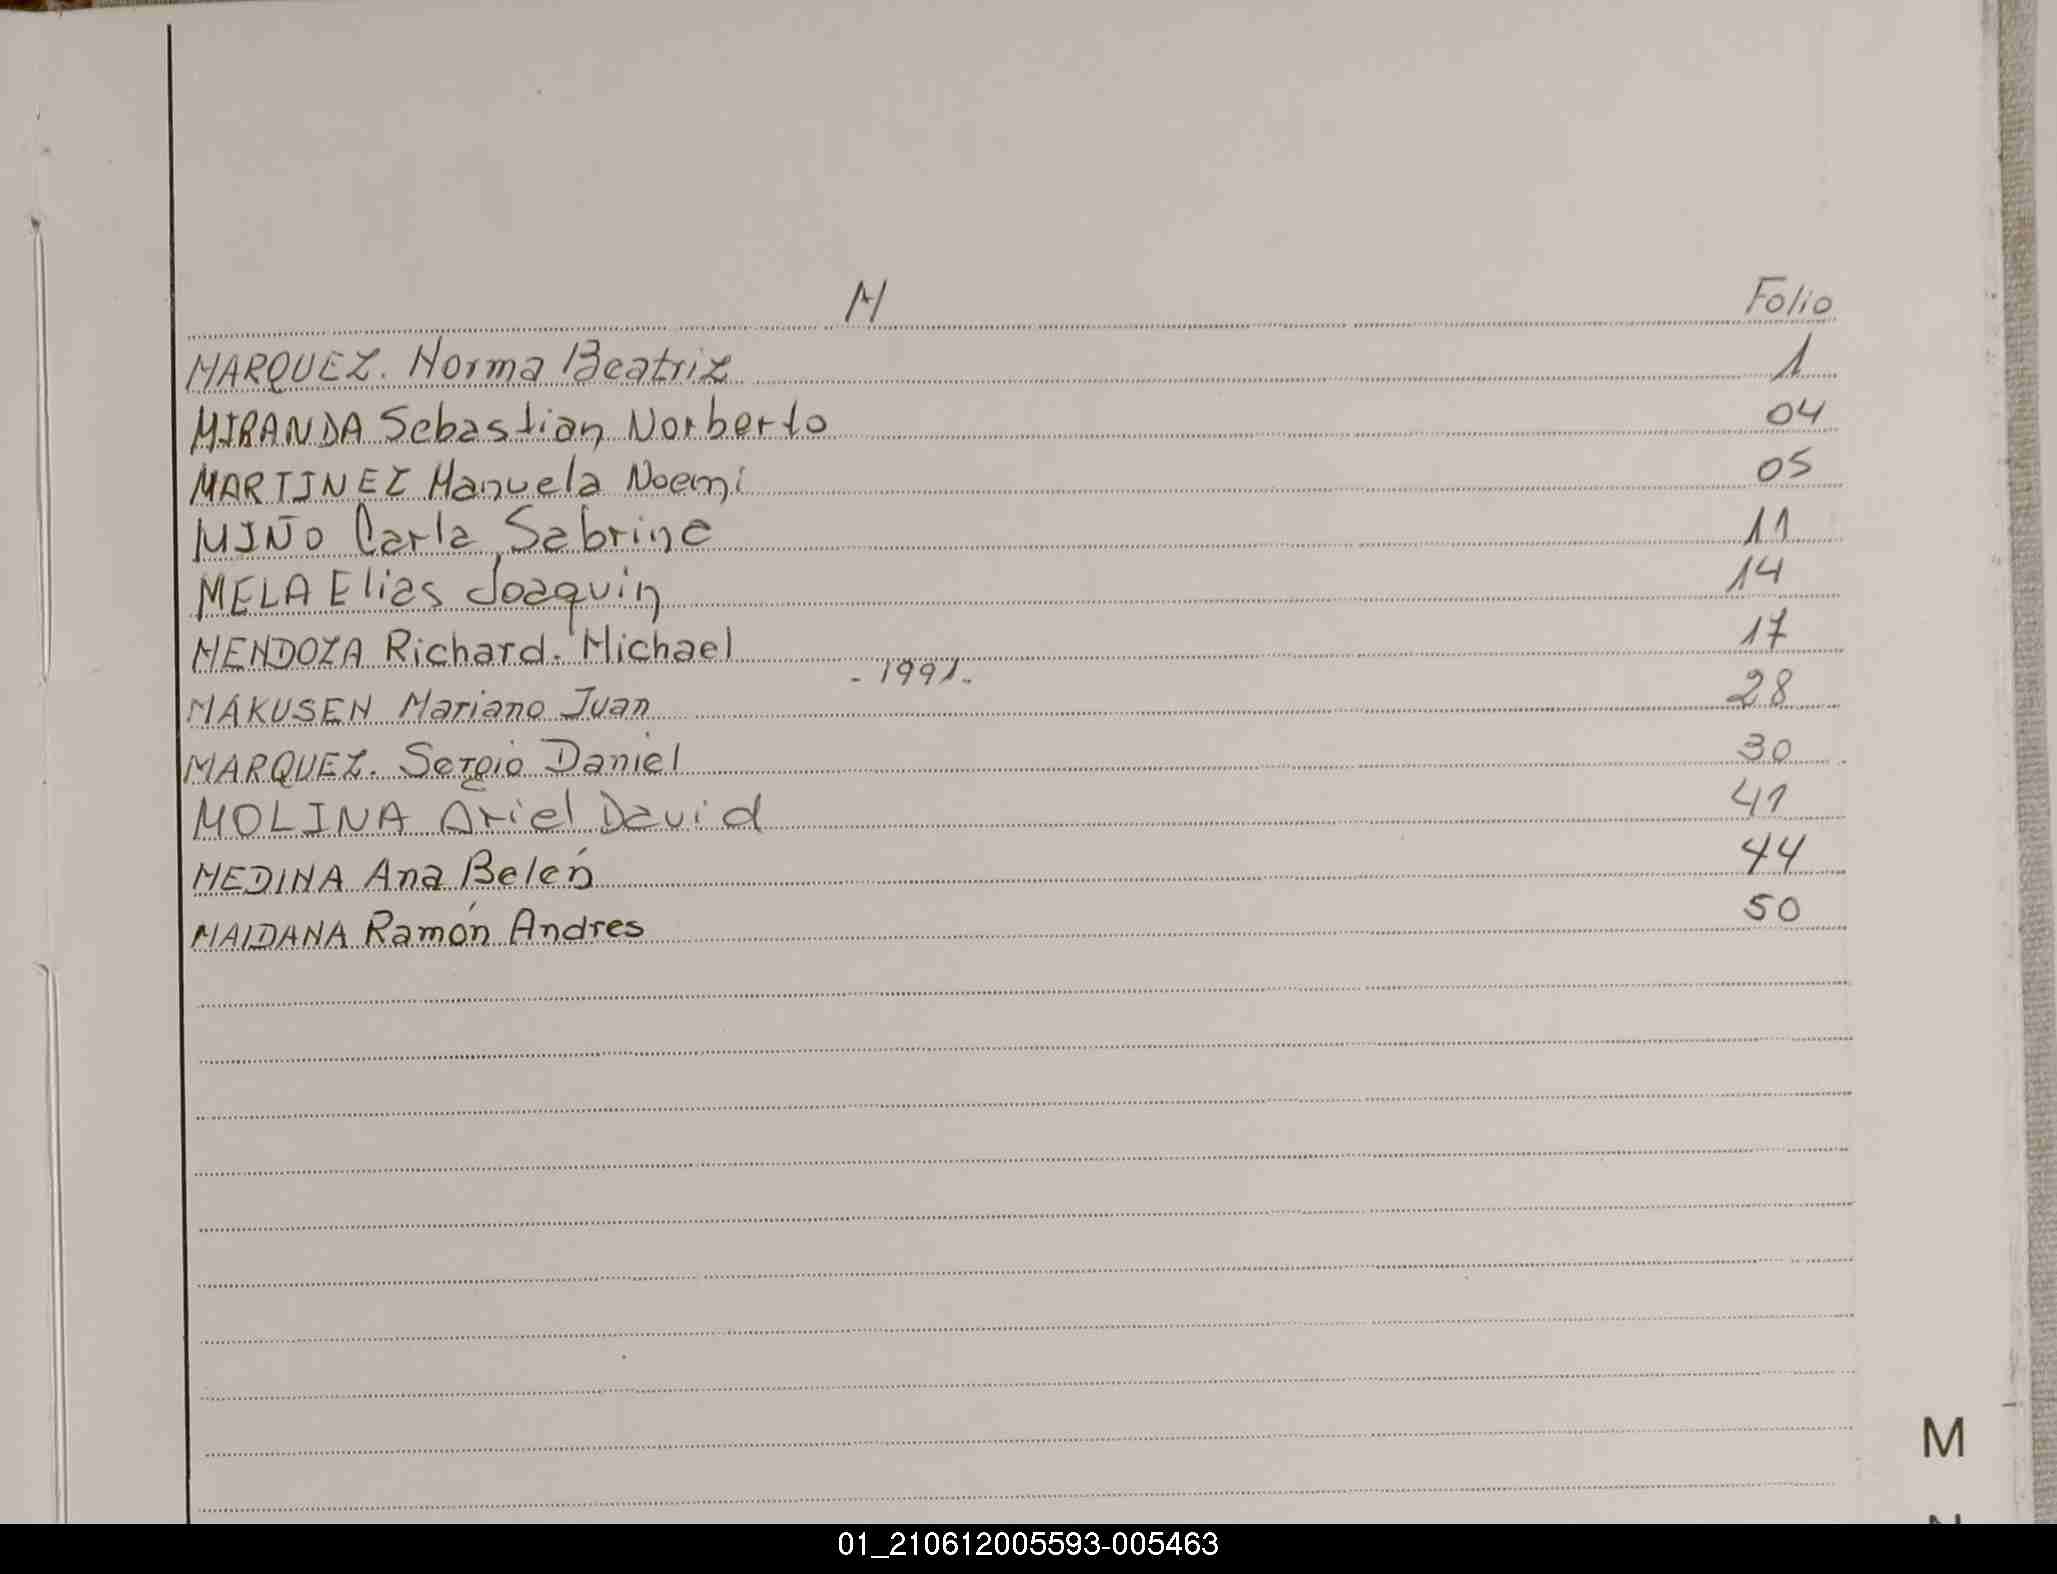 M Folio
MARQUEZ. Norma Beatriz 1
MIRANDA Sebastian Norberto 04
MARTINEZ Manuela Noemi 05
MIÑO Carla Sabrina 11
MELA Elias Joaquin 14
MENDOZA Richard. Michael 17
- 1991.-
MAKUSEN Mariano Juan 28
MARQUEZ. Sergio Daniel 30
MOLINA Ariel David 41
MEDINA Ana Belén 44
MAIDANA Ramón Andres 50
M
01_210612005593-005463